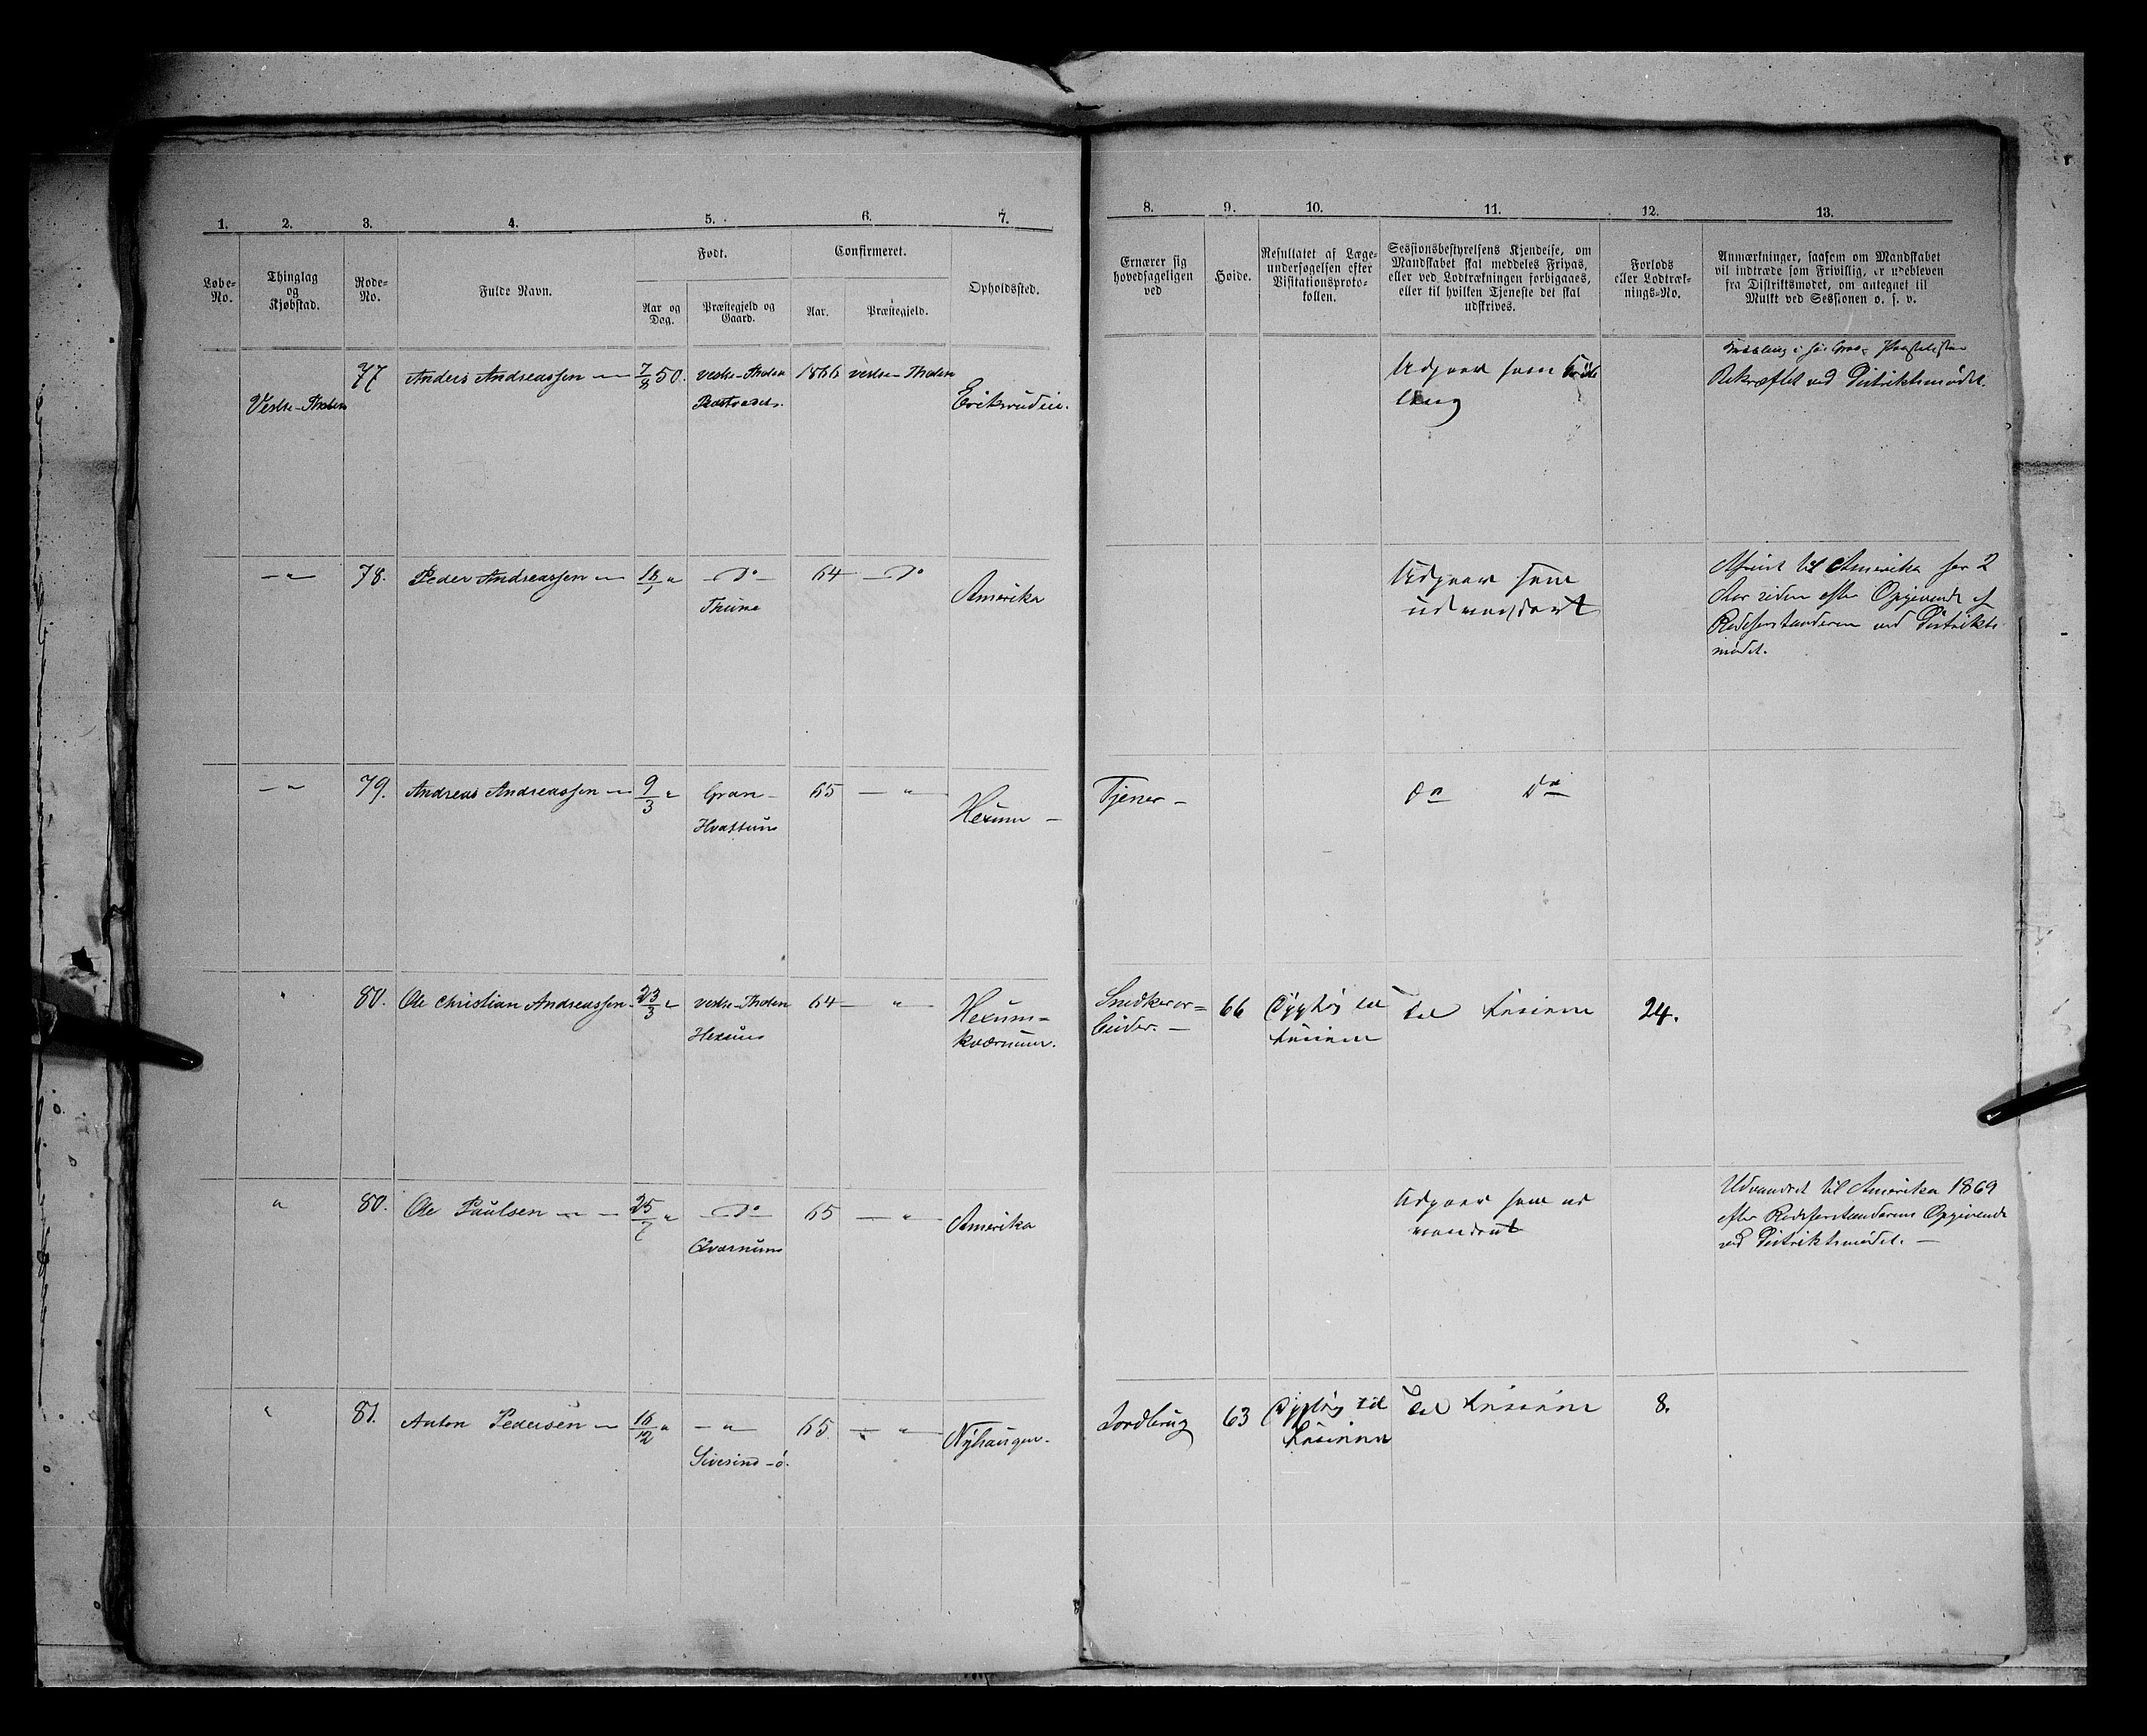 1. 2. 3. 4. 5. 6. 7.
Løbe-No. Thinglag og Kjøbstad. Rode-No. Fulde Navn. Født. Confirmeret. Opholdssted.
Aar og Dag. Præstegjeld og Gaard. Aar. Præstegjeld.
77 Anders Andreassen — 7/8 50. Vestre-Thoten 1866 Vestre-Thoten
Vestre-Thoten Eriksrudeie.
—"— 78. Peder Andreassen — " — Do — 64 — Do
Thune Amerika
—"— 79. Andreas Andreassen — 9/3 " Gran — 65 — " —
Hvattum Hexum —
" 80. Ole Christian Andreassen. 23/3 " Vestre-Thoten 64 — " — Hexum=
Hexum kværnum.
" 80. Ole Paulsen — — 25/7 " — Do — 65 — " — Amerika
Qværnum
" 81. Anton Pedersen — 16/12 " — " — 65. — " — Nyhaugen.
Sivesind-ø.
8. 9. 10. 11. 12. 13.
Ernærer sig hovedsageligen ved
Høide.
Resultatet af Læge-
undersøgelsen efter
Visitationsproto-
kollen.
Sessionsbestyrelsens Kjendelse, om
Mandskabet skal meddeles Fripas,
eller ved Lodtrækningen forbigaaes,
eller til hvilken Tjeneste det skal
udskrives.
Forlods
eller Lodtræk-
nings-No.
Anmærkninger, saasom om Mandskabet
vil indtræde som Frivillig, er udebleven
fra Distriktsmødet, om anlegnet til
Mulkt ved Sessionen o. s. v.
Udgaar som
Bekræftet ved Distriktsmødet.
Udgaar som
udvandret
Afreist til Amerika for 2
Aar siden efter Opgivende af
Rodeforstanderen ved Distrikts
mødet.
Tjener — do do
Snedkerar=
beider. — 66 Dygtig til
Linien Til Linien 24.
Udgaar som ud
vandret
Udvandret til Amerika 1869
efter Rodeforstanderens Opgivende
ved Distriktsmødet. —
Jordbrug 63 Dygtig til
Linien Til Linien 8.